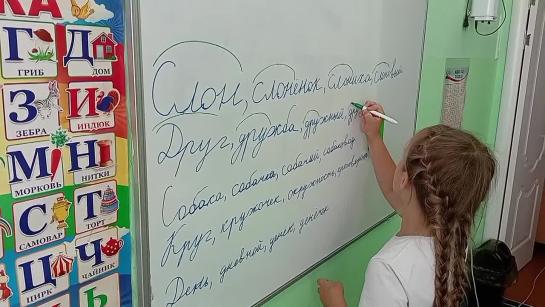 КА
Г Д
ГРИБ ДОМ
З И
ЗЕБРА ИНДЮК
М Н
МОРКОВЬ НИТКИ
С Т
САМОВАР ТОРТ
Ц Ч
ЦИРК ЧАЙНИК
Ь
Слон, слонёнок, слониха, слоновый
Друг, дружба, дружный,
Собака, собачка, собачий, собаковод
Круг, кружочек, окружность,
День, дневной, денёк, денёчек